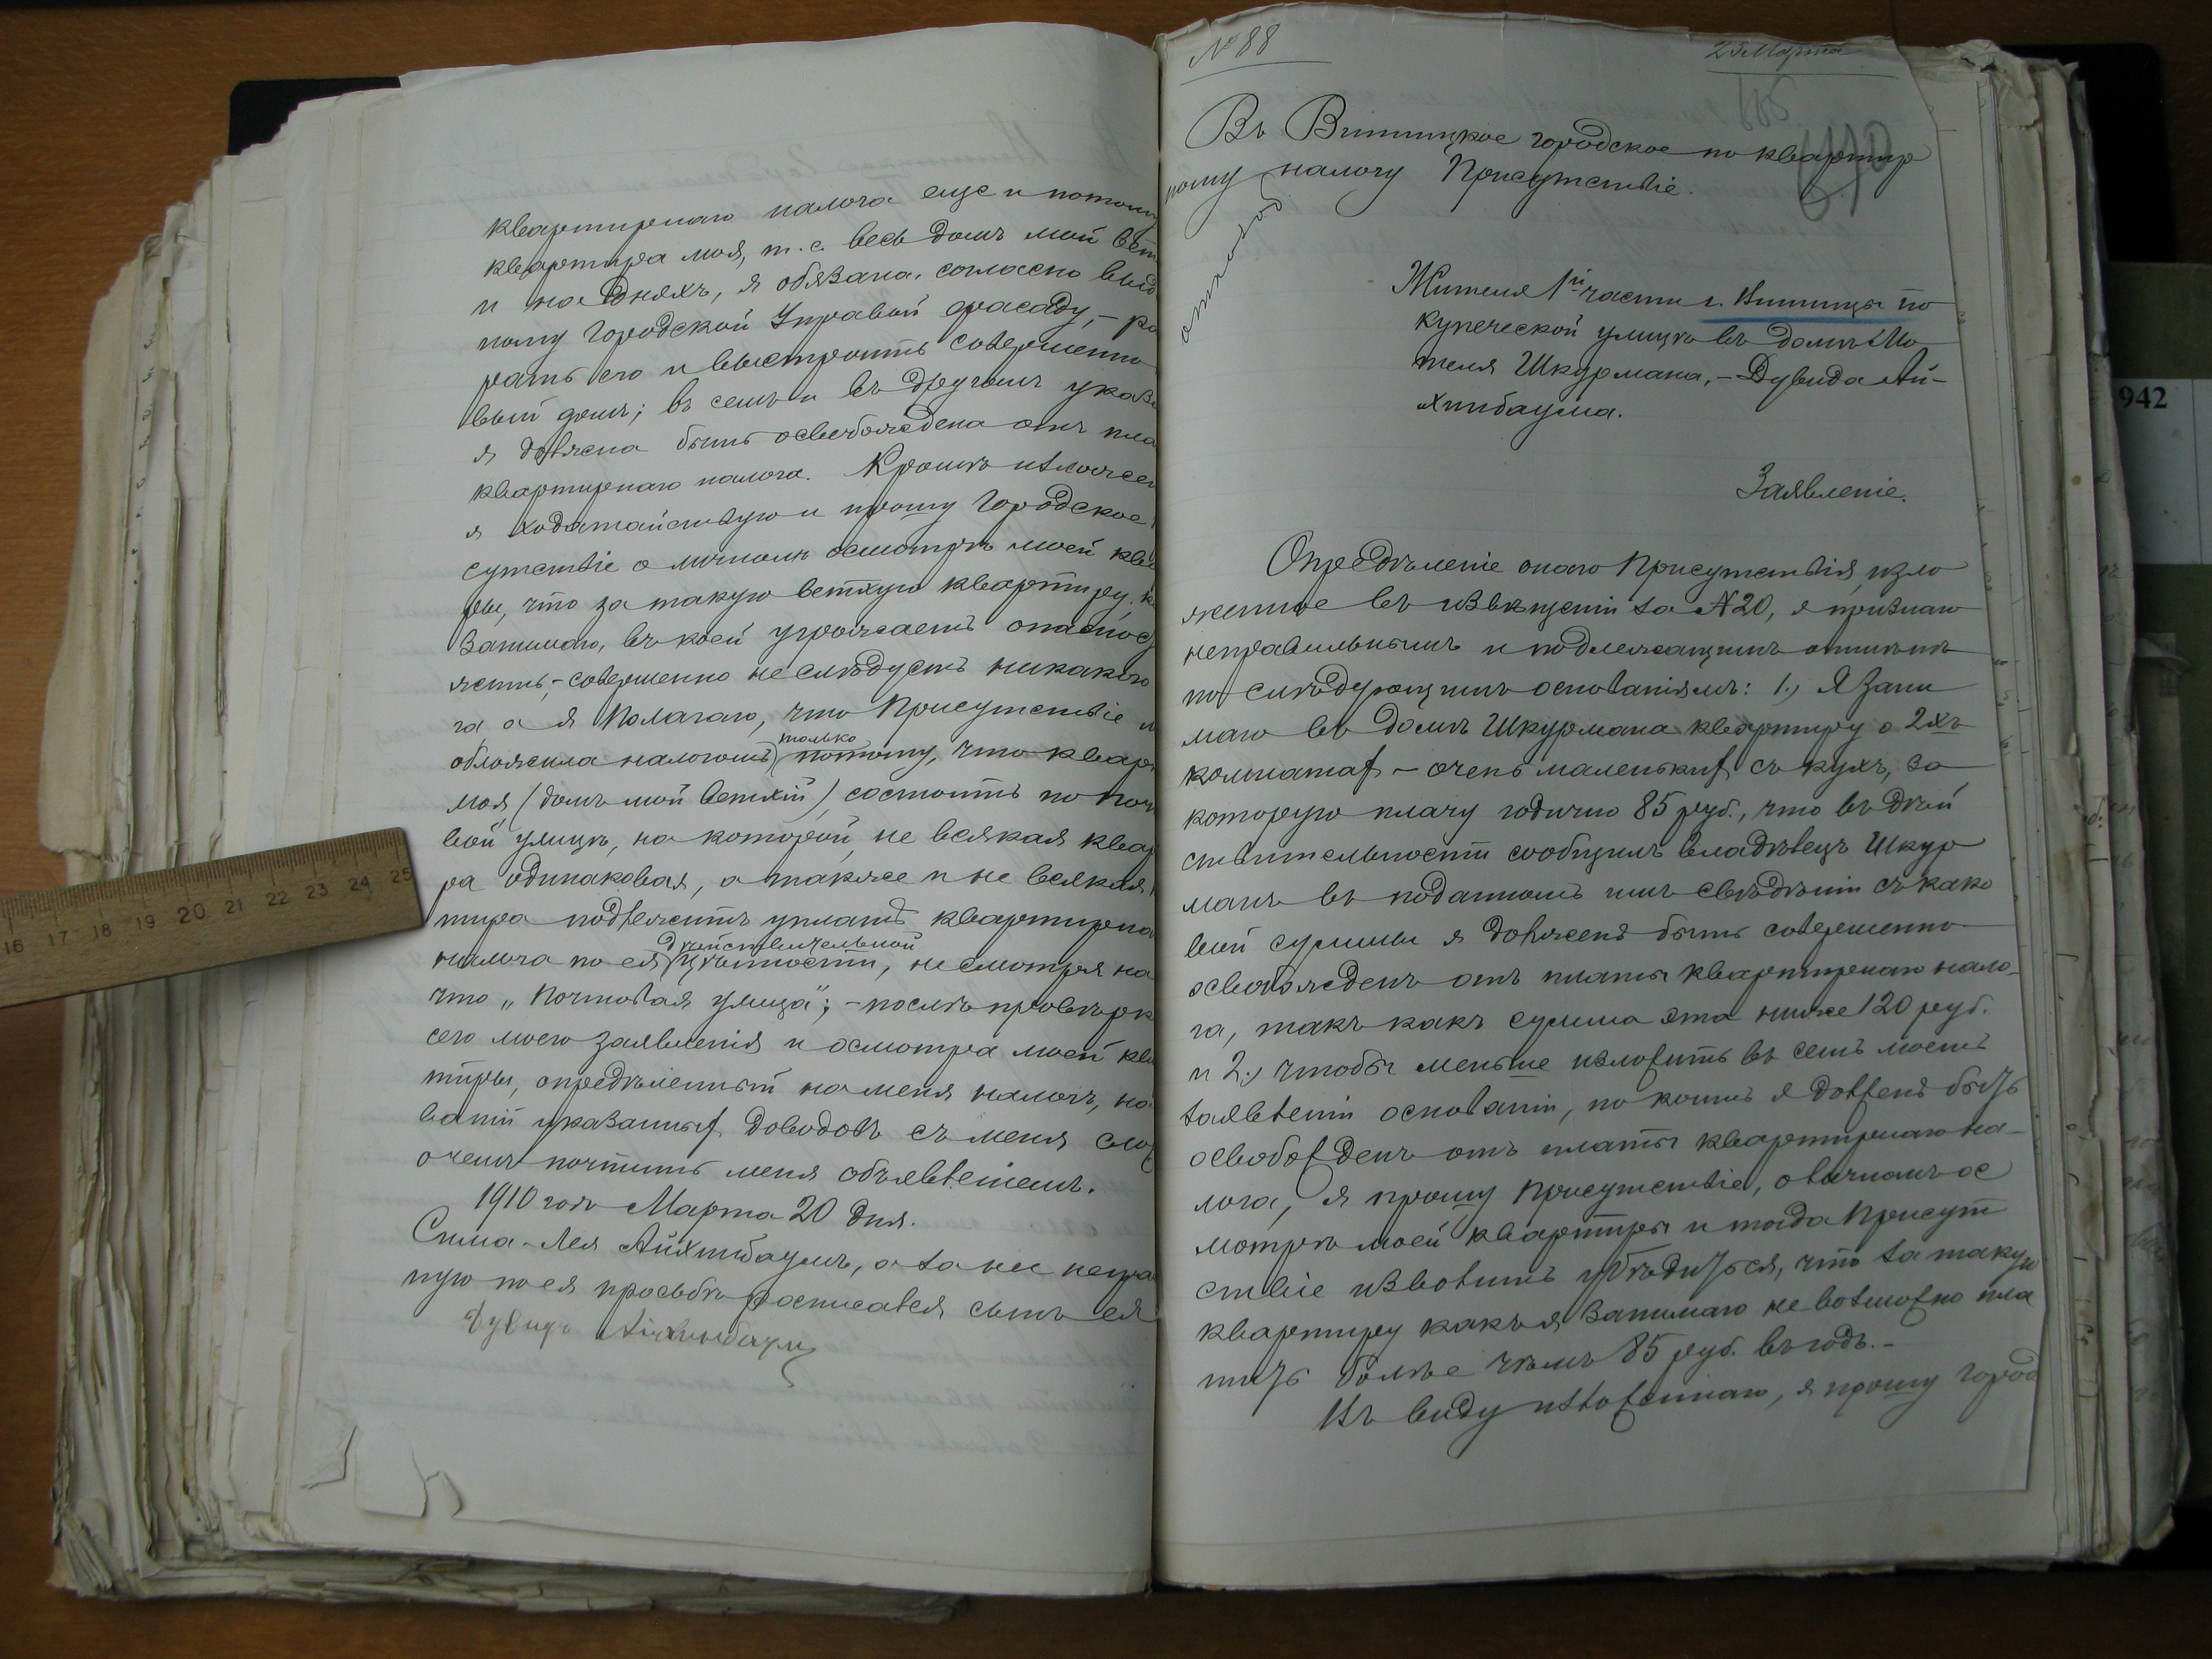 квартирнаго налога еще и потому
квартира моя, т. е. весь домъ мой вет
и на дняхъ, я обязана, согласно выд
ному Городской Управой фасаду, – ра
рать его и выстроить совершенно
вый домъ; въ семъ и въ другомъ указ
я должна быть освобождена отъ пла
квартирнаго налога. Кромѣ изложен
я ходатайствую и прошу Городское
сутствіе о личномъ осмотрѣ моей ква
ры, что за такую ветхую квартиру, к
занимаю, въ коей угрожаетъ опаснос
жить, – совершенно не слѣдуетъ никакого
га а я полагаю, что Присутствіе м
обложила налогомъ только потому, что квар
моя, (домъ мой ветхій), состоитъ по Поч
вой улицѣ, на которой, не всякая квар
ра одинаковая, а также и не всякая
тира подлежитъ уплатѣ квартирна
налога по ея дѣйствительной цѣнности, не смотря на
что „Почтовая улица“; – послѣ провѣрк
сего моего заявленія и осмотра моей ква
тиры, опредѣленный на меня налогъ, на
ваніи указанныхъ доводовъ съ меня сло
о чемъ почтить меня объявленіемъ.
1910 годъ Марта 20 дня.
Сима-Лея Айхинбаумъ, а за нее негра
ную по ея просьбѣ росписался сынъ ея
Дувидъ Айхинбаумъ
№ 88
25 Марта
Въ Винницкое городское по квартир
ному налогу Присутствіе.
Жителя 1й части г. Винницы по
купеческой улицѣ въ домѣ Мо
теля Шкурмана, – Дувида Ай-
хинбаума.
Заявленіе.
Опредѣленіе онаго Присутствія, изло
женное въ извѣщеніи за № 20, я признаю
неправильнымъ и подлежащимъ отмѣнѣ
по слѣдующимъ основаніямъ: 1.) Я зани
маю въ домѣ Шкурмана квартиру о 2хъ
комнатах – очень маленьких съ кухн, за
которую плачу годично 85 руб., что въ дѣй
ствительности сообщилъ владѣлецъ Шкур
манъ въ поданномъ имъ свѣдѣніи съ како
вой суммы я долженъ быть совершенно
освобожденъ отъ платы квартирнаго нало-
га, такъ какъ сумма эта ниже 120 руб.
и 2.) чтобы меньше изложить въ семъ моемъ
заявленіи основаніи, по коимъ я долженъ быть
освобожденъ отъ платы квартирнаго на-
лога, я прошу Присутствіе, о личномъ ос
мотрѣ моей квартиры и тогда Присут
ствіе изволитъ убѣдиться, что за такую
квартиру какъ я занимаю не возможно пла
тить болѣе чѣмъ 85 руб. въ годъ. –
Въ виду изложеннаго, я прошу город
16 17 18 19 20 21 22 23 24 25
942